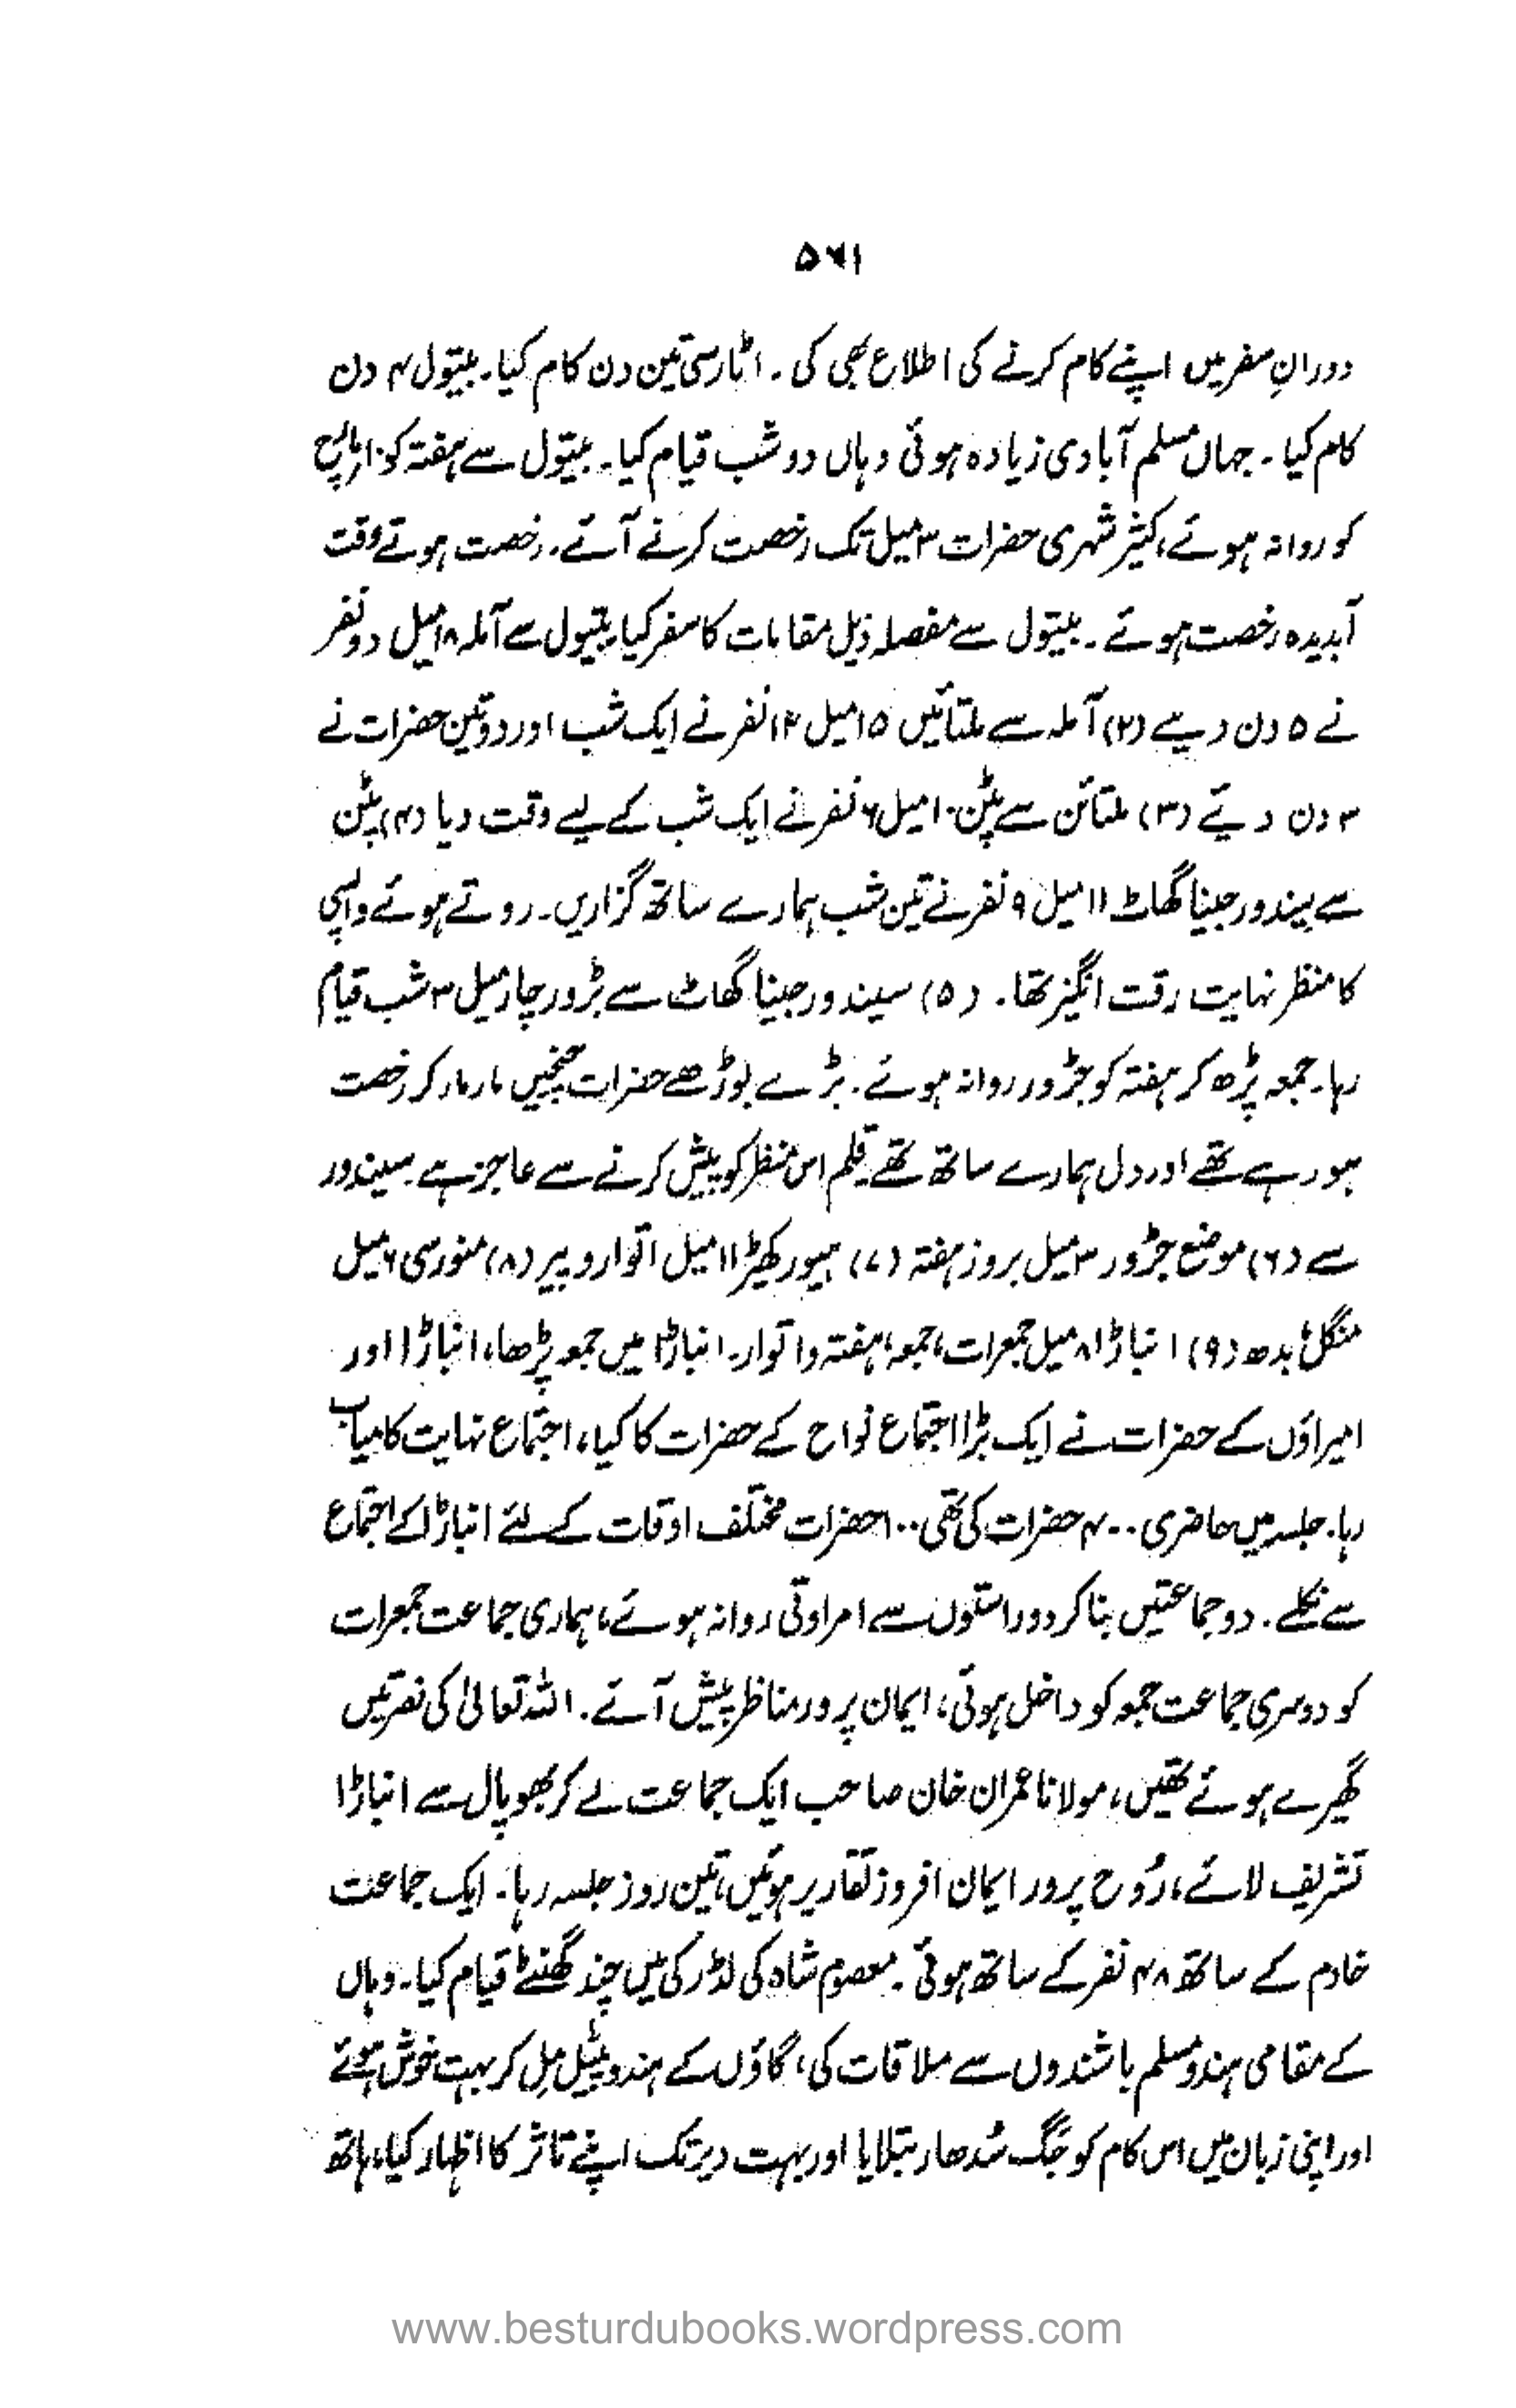 ۵۶۱
دورانِ سفر میں اپنے کام کرنے کی اطلاع بھی کی ۔ اٹارسی تین دن کام کیا۔ بیتول ۴ دن
کام کیا ۔ جہاں مسلم آبادی زیادہ ہوئی وہاں دو شب قیام کیا۔ بیتول سے ہفتہ کو ۱۰ مارچ
کو روانہ ہوئے، کثیر شہری حضرات ۳ میل تک رخصت کرنے آئے۔ رخصت ہوتے وقت
آبدیدہ رخصت ہوئے ۔ بیتول سے مفصلہ ذیل مقامات کا سفر کیا۔ بیتول سے آملہ ۱۸ میل دو نفر
نے ۵ دن دیے (۲) آملہ سے ملتائیں ۱۵ میل ۱۲ نفر نے ایک شب اور دو تین حضرات نے
۳ دن دیئے (۳) ملتائن سے پٹن ۱۰ میل ۶ نفر نے ایک شب کے لیے وقت دیا (۴) پٹن
سے سیندور جینا گھاٹ ۱۱ میل ۹ نفر نے تین شب ہمارے ساتھ گزاریں۔ روتے ہوئے واپسی
کا منظر نہایت رقت انگیز تھا۔ (۵) سیندور جینا گھاٹ سے بڑور چار میل ۳ شب قیام
رہا۔ جمعہ پڑھ کر ہفتہ کو جڑور روانہ ہوئے۔ بڑے بوڑھے حضرات چیخیں مار مار کر رخصت
ہو رہے تھے اور دل ہمارے ساتھ تھے قلم اس منظر کو پیش کرنے سے عاجز ہے۔ سیندور
سے (۶) موضع جڑور ۳ میل بروز ہفتہ (۷) ہیور کھیڑ ۱۱ میل اتوار و پیر (۸) منورسی ۶ میل
منگل بدھ (۹) انباڑا ۸ میل جمعرات، جمعہ، ہفتہ و اتوار۔ انباڑا میں جمعہ پڑھا، انباڑا اور
امیراؤں کے حضرات نے ایک بڑا اجتماع نواح کے حضرات کا کیا، اجتماع نہایت کامیاب
رہا۔ جلسہ میں حاضری ۴۰۰ حضرات کی تھی ۱۰۰ حضرات مختلف اوقات کے لئے انباڑا کے اجتماع
سے نکلے ۔ دو جماعتیں بنا کر دو راستوں سے امراوتی روانہ ہوئے، ہماری جماعت جمعرات
کو دوسری جماعت جمعہ کو داخل ہوئی، ایمان پرور مناظر پیش آئے۔ اللہ تعالیٰ کی نصرتیں
گھیرے ہوئے تھیں، مولانا عمران خان صاحب ایک جماعت لے کر بھوپال سے انباڑا
تشریف لائے، رُوح پرور ایمان افروز تقاریر ہوئیں، تین روز جلسہ رہا۔ ایک جماعت
خادم کے ساتھ ۴۸ نفر کے ساتھ ہوئی ۔ معصوم شاہ کی لڈر کی میں چند گھنٹے قیام کیا۔ وہاں
کے مقامی ہندو مسلم باشندوں سے ملاقات کی، گاؤں کے ہندو پٹیل مِل کر بہت خوش ہوئے
اور اپنی زبان میں اس کام کو جگ سُدھار بتلایا اور بہت دیر تک اپنے تاثر کا اظہار کیا، ہاتھ
www.besturdubooks.wordpress.com